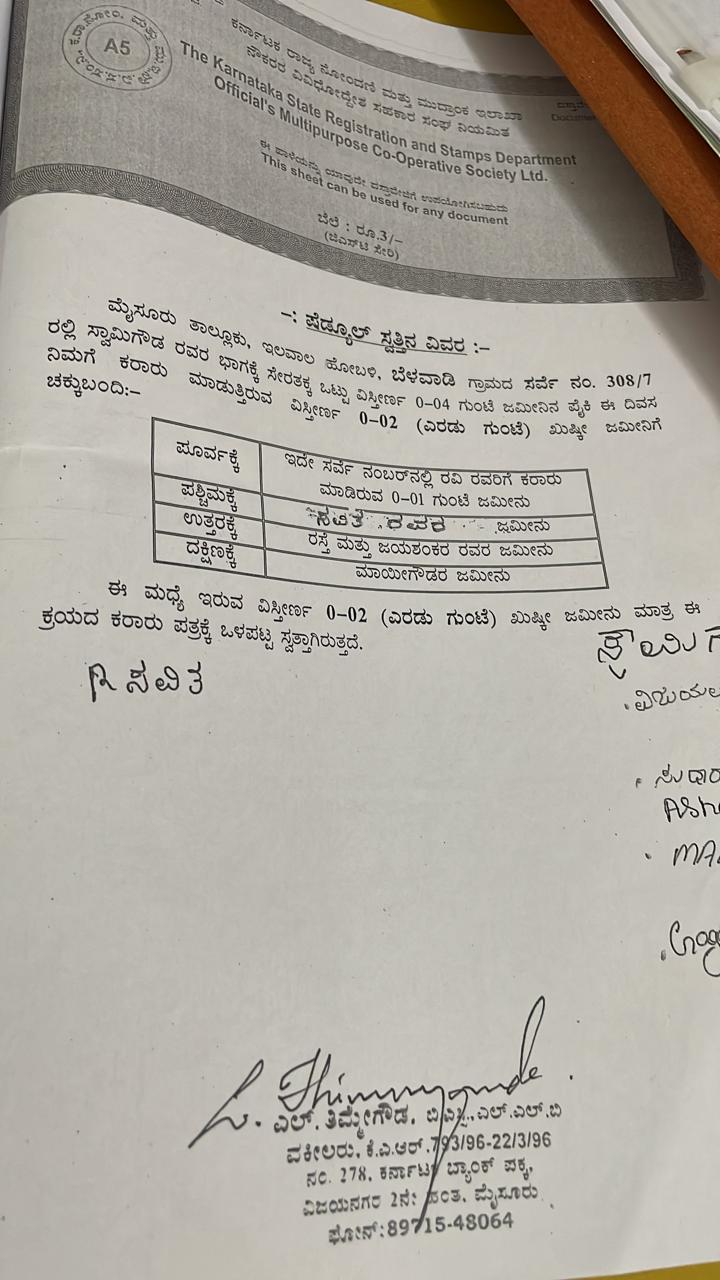 A5
ಕರ್ನಾಟಕ ರಾಜ್ಯ ನೋಂದಣಿ ಮತ್ತು ಮುದ್ರಾಂಕ ಇಲಾಖಾ
ನೌಕರರ ವಿವಿಧೋದ್ದೇಶ ಸಹಕಾರ ಸಂಘ ನಿಯಮಿತ
The Karnataka State Registration and Stamps Department
Official's Multipurpose Co-Operative Society Ltd.
ಈ ಹಾಳೆಯನ್ನು ಯಾವುದೇ ದಸ್ತಾವೇಜಿಗೆ ಉಪಯೋಗಿಸಬಹುದು
This sheet can be used for any document
ಬೆಲೆ : ರೂ.3/–
(ಜಿಎಸ್‌ಟಿ ಸೇರಿ)
–: ಷೆಡ್ಯೂಲ್ ಸ್ವತ್ತಿನ ವಿವರ :–
ಮೈಸೂರು ತಾಲ್ಲೂಕು, ಇಲವಾಲ ಹೋಬಳಿ, ಬೆಳವಾಡಿ ಗ್ರಾಮದ ಸರ್ವೆ ನಂ. 308/7
ರಲ್ಲಿ ಸ್ವಾಮಿಗೌಡ ರವರ ಭಾಗಕ್ಕೆ ಸೇರತಕ್ಕ ಒಟ್ಟು ವಿಸ್ತೀರ್ಣ 0–04 ಗುಂಟೆ ಜಮೀನಿನ ಪೈಕಿ ಈ ದಿವಸ
ನಿಮಗೆ ಕರಾರು ಮಾಡುತ್ತಿರುವ ವಿಸ್ತೀರ್ಣ 0–02 (ಎರಡು ಗುಂಟೆ) ಖುಷ್ಕೀ ಜಮೀನಿಗೆ
ಚಕ್ಕುಬಂದಿ:–
ಪೂರ್ವಕ್ಕೆ ಇದೇ ಸರ್ವೆ ನಂಬರ್‌ನಲ್ಲಿ ರವಿ ರವರಿಗೆ ಕರಾರು
ಮಾಡಿರುವ 0–01 ಗುಂಟೆ ಜಮೀನು
ಪಶ್ಚಿಮಕ್ಕೆ ಸವಿತ ರವರ ಜಮೀನು
ಉತ್ತರಕ್ಕೆ ರಸ್ತೆ ಮತ್ತು ಜಯಶಂಕರ ರವರ ಜಮೀನು
ದಕ್ಷಿಣಕ್ಕೆ ಮಾಯೀಗೌಡರ ಜಮೀನು
ಈ ಮಧ್ಯೆ ಇರುವ ವಿಸ್ತೀರ್ಣ 0–02 (ಎರಡು ಗುಂಟೆ) ಖುಷ್ಕೀ ಜಮೀನು ಮಾತ್ರ ಈ
ಕ್ರಯದ ಕರಾರು ಪತ್ರಕ್ಕೆ ಒಳಪಟ್ಟ ಸ್ವತ್ತಾಗಿರುತ್ತದೆ.
ಸವಿತ
L. Thimmegowda
ಎಲ್. ತಿಮ್ಮೇಗೌಡ, ಬಿ.ಎಸ್ಸಿ.,ಎಲ್.ಎಲ್.ಬಿ
ವಕೀಲರು, ಕೆ.ಎ.ಆರ್.793/96-22/3/96
ನಂ. 278, ಕರ್ನಾಟಕ ಬ್ಯಾಂಕ್ ಪಕ್ಕ,
ವಿಜಯನಗರ 2ನೇ ಹಂತ, ಮೈಸೂರು
ಫೋನ್:89715-48064